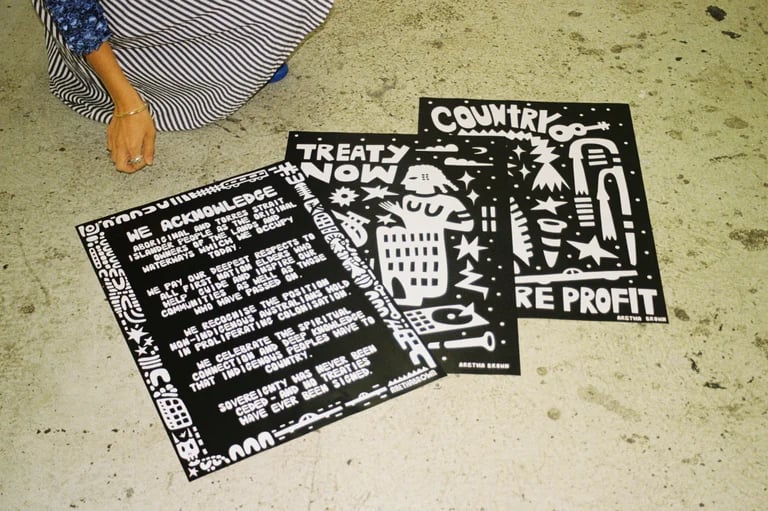 WE ACKNOWLEDGE
ABORIGINAL AND TORRES STRAIT
ISLANDER PEOPLE AS THE ORIGINAL
OWNERS OF THE LANDS AND
WATERWAYS WHICH WE OCCUPY
TODAY.
WE PAY OUR DEEPEST RESPECTS TO
ALL FIRST NATION ELDERS WHO
HELP GUIDE AND INSPIRE OUR
COMMUNITIES AS WELL AS THOSE
WHO HAVE PASSED ON.
WE RECOGNISE THE POSITION
NON-INDIGENOUS AUSTRALIANS HOLD
IN PROLIFERATING COLONISATION.
WE CELEBRATE THE SPIRITUAL
CONNECTION AND DEEP KNOWLEDGE
THAT INDIGENOUS PEOPLES HAVE TO
COUNTRY.
SOVEREIGNTY WAS NEVER BEEN
CEDED - AND NO TREATIES
HAVE EVER BEEN SIGNED.
ARETHA BROWN
TREATY
NOW
ARETHA BROWN
COUNTRY
RE PROFIT
ARETHA BROWN